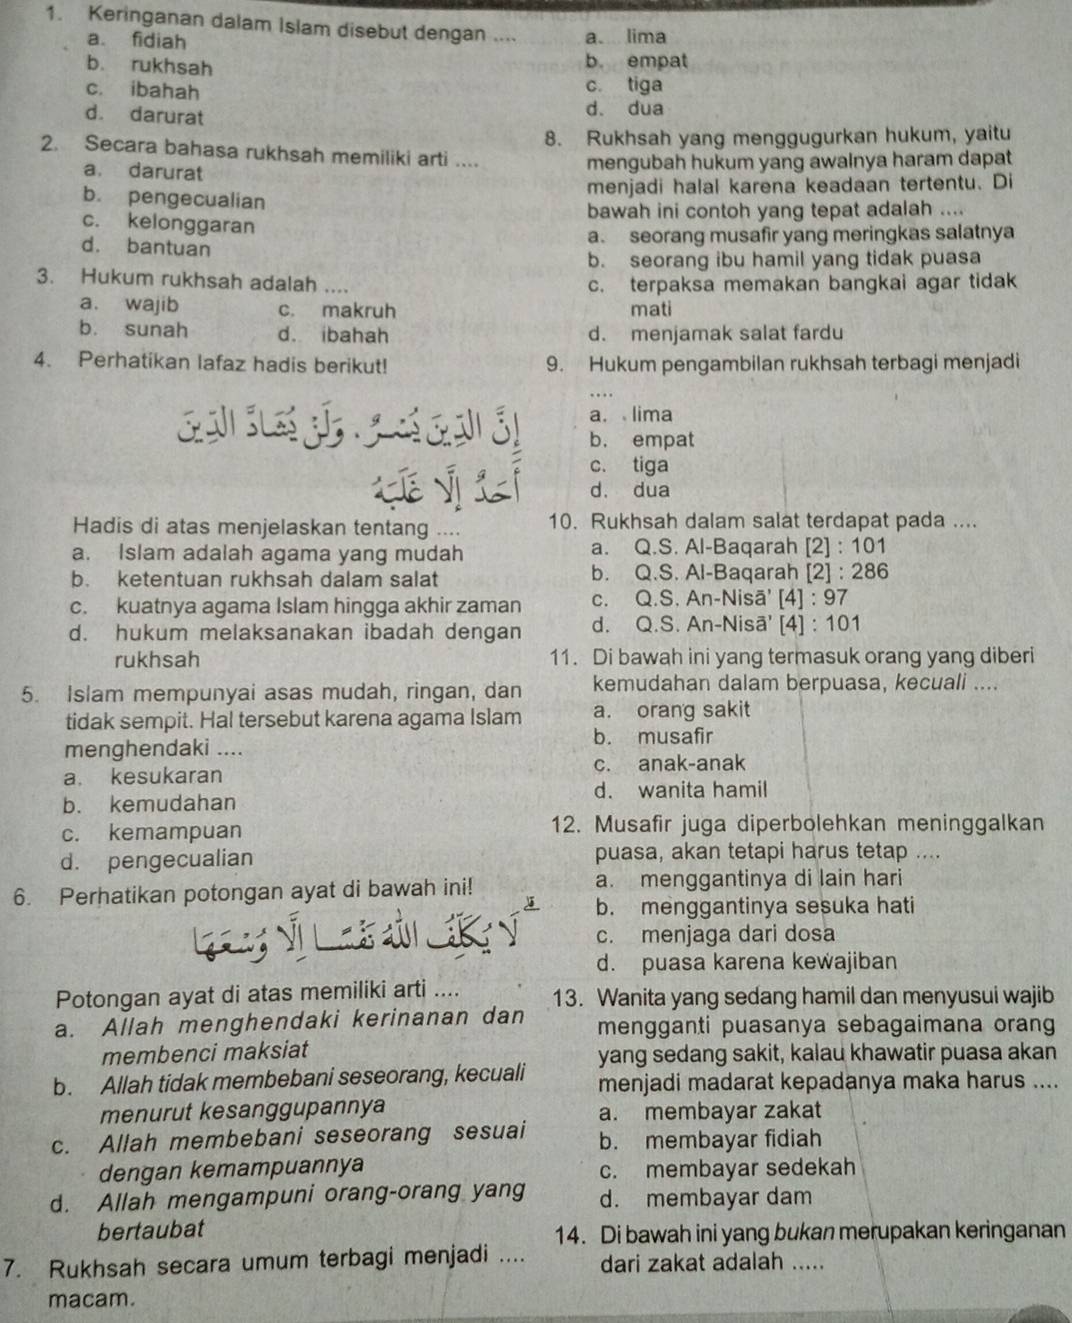 1. Keringanan dalam Islam disebut dengan ....
a. fidiah
b. rukhsah
c. ibahah
d. darurat
2. Secara bahasa rukhsah memiliki arti ....
a. darurat
b. pengecualian
c. kelonggaran
d. bantuan
3. Hukum rukhsah adalah ....
a. wajib c. makruh
b. sunah d. ibahah
4. Perhatikan lafaz hadis berikut!
إِنَّ الدِّيْنَ يُسْرٌ . وَلَنْ يُشَادَّ الدِّيْنَ
أَحَدٌ إِلَّا غَلَبَهُ
Hadis di atas menjelaskan tentang ....
a. Islam adalah agama yang mudah
b. ketentuan rukhsah dalam salat
c. kuatnya agama Islam hingga akhir zaman
d. hukum melaksanakan ibadah dengan
rukhsah
5. Islam mempunyai asas mudah, ringan, dan
tidak sempit. Hal tersebut karena agama Islam
menghendaki ....
a. kesukaran
b. kemudahan
c. kemampuan
d. pengecualian
6. Perhatikan potongan ayat di bawah ini!
لَا يُكَلِّفُ اللّٰهُ نَفْسًا إِلَّا وُسْعَهَا
Potongan ayat di atas memiliki arti ....
a. Allah menghendaki kerinanan dan
membenci maksiat
b. Allah tidak membebani seseorang, kecuali
menurut kesanggupannya
c. Allah membebani seseorang sesuai
dengan kemampuannya
d. Allah mengampuni orang-orang yang
bertaubat
7. Rukhsah secara umum terbagi menjadi ....
macam.
a. lima
b. empat
c. tiga
d. dua
8. Rukhsah yang menggugurkan hukum, yaitu
mengubah hukum yang awalnya haram dapat
menjadi halal karena keadaan tertentu. Di
bawah ini contoh yang tepat adalah ....
a. seorang musafir yang meringkas salatnya
b. seorang ibu hamil yang tidak puasa
c. terpaksa memakan bangkai agar tidak
mati
d. menjamak salat fardu
9. Hukum pengambilan rukhsah terbagi menjadi
....
a. lima
b. empat
c. tiga
d. dua
10. Rukhsah dalam salat terdapat pada ....
a. Q.S. Al-Baqarah [2] : 101
b. Q.S. Al-Baqarah [2] : 286
c. Q.S. An-Nisā' [4] : 97
d. Q.S. An-Nisā' [4] : 101
11. Di bawah ini yang termasuk orang yang diberi
kemudahan dalam berpuasa, kecuali ....
a. orang sakit
b. musafir
c. anak-anak
d. wanita hamil
12. Musafir juga diperbolehkan meninggalkan
puasa, akan tetapi harus tetap ....
a. menggantinya di lain hari
b. menggantinya sesuka hati
c. menjaga dari dosa
d. puasa karena kewajiban
13. Wanita yang sedang hamil dan menyusui wajib
mengganti puasanya sebagaimana orang
yang sedang sakit, kalau khawatir puasa akan
menjadi madarat kepadanya maka harus ....
a. membayar zakat
b. membayar fidiah
c. membayar sedekah
d. membayar dam
14. Di bawah ini yang bukan merupakan keringanan
dari zakat adalah .....